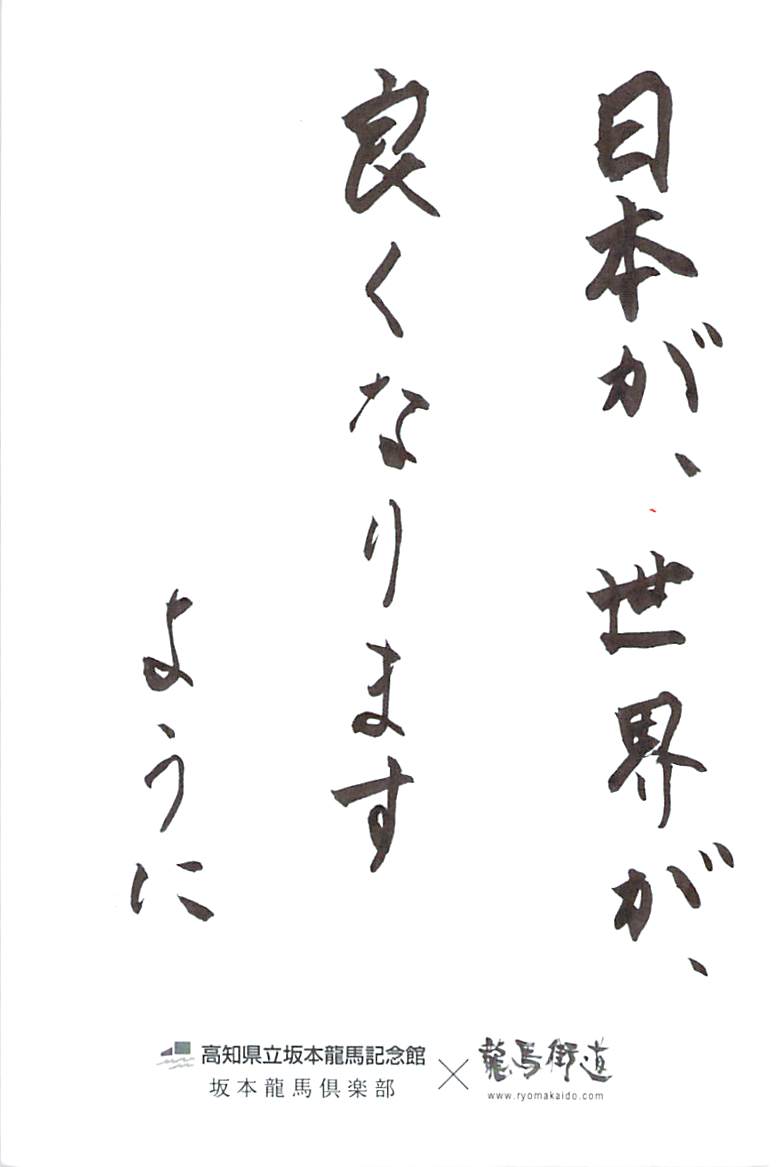 日本が、世界が、
良くなります
ように
高知県立坂本龍馬記念館
坂本龍馬倶楽部
×
龍馬街道
www.ryomakaido.com